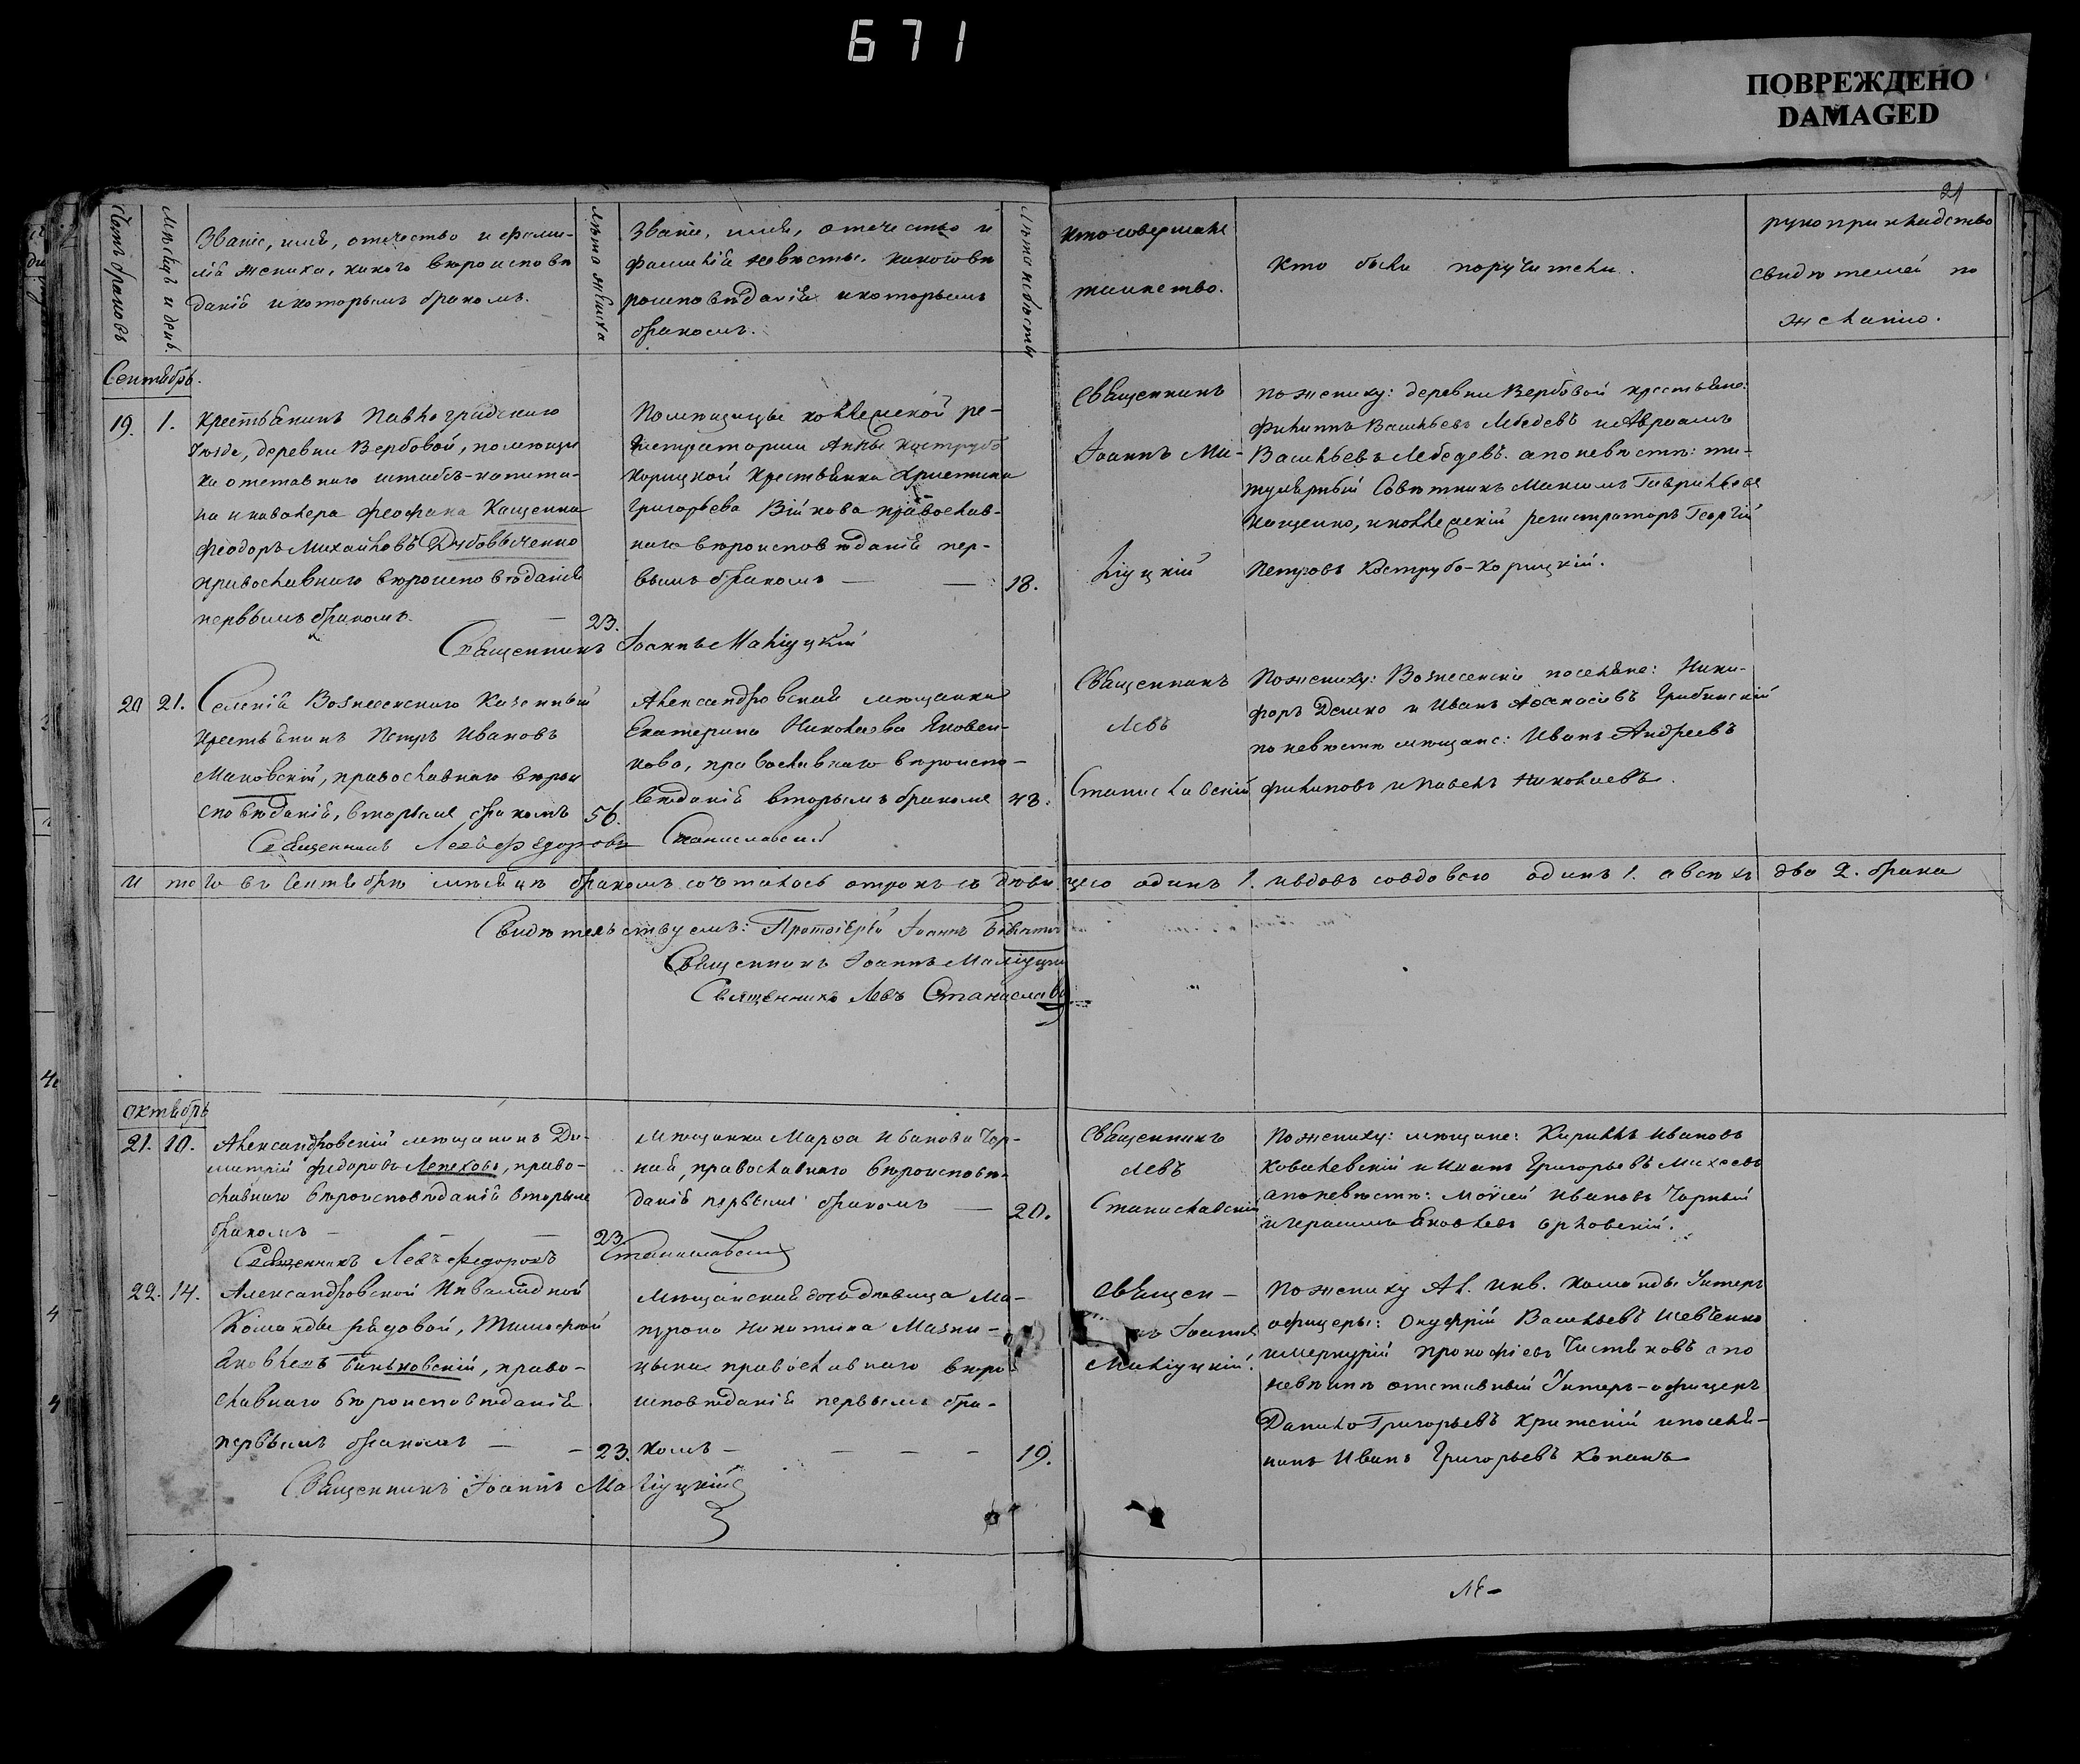 671
ПОВРЕЖДЕНО
DAMAGED
21
Счетъ браковъ
Мѣсяцъ и день.
Званіе, имя, отечество и фами-
лія жениха, какого вѣроисповѣ
данія и которымъ бракомъ.
Лѣта жениха
Званіе, имя, отечество и
фамилія невѣсты, какого вѣ
роисповѣданія и которымъ
бракомъ.
Лѣта невѣсты
Кто совершалъ
таинство.
Кто были поручители.
рукоприкладство
свидѣтелей по
желанію.
Сентябрь.
19. 1.
Крестьянинъ Павлоградскаго
уѣзда, деревни Вербовой, помѣщи
ка отставнаго штабсъ-капита-
на и кавалера Феофана Кащенка
Феодоръ Михайловъ Дубовыченко
православнаго вѣроисповѣданія
первымъ бракомъ. — 23.
Помѣщицы коллежской ре-
гистраторши Анны Кострубо
Корицкой крестьянка Христина
Григорьева Війкова православ-
наго вѣроисповѣданія пер-
вымъ бракомъ — — 18.
Священникъ
Іоаннъ Ма-
ліуцкій
По жениху: деревни Вербовой крестьяне:
Филиппъ Васильевъ Лебедевъ и Авраамъ
Васильевъ Лебедевъ. а по невѣстѣ: ти-
тулярный Совѣтникъ Максимъ Гавриловъ
Кащенко, и коллежскій регистраторъ Георгій
Петровъ Кострубо-Корицкій.
Священникъ Іоаннъ Маліуцкій
20 21.
Селенія Вознесенскаго Казенный
крестьянинъ Петръ Ивановъ
Маковскій, православнаго вѣрои
сповѣданія, вторымъ бракомъ 56.
Александровская мѣщанка
Екатерина Николаева Яковен-
кова, православнаго вѣроиспо-
вѣданія вторымъ бракомъ 48.
Священникъ
Левъ
Станиславскій
По жениху: Вознесенскіе поселяне: Ники-
форъ Демко и Иванъ Афанасіевъ Грибинскій
по невѣстѣ мѣщане: Иванъ Андреевъ
Филиповъ и Павелъ Николаевъ.
Священникъ Левъ Федоровъ Станиславскій
И того въ Сентябрѣ мѣсяцѣ бракомъ сочталось отрокъ съ дѣви цею одинъ 1. вдовъ со вдовою одинъ 1. а всѣхъ два 2. брака
Свидѣтельствуемъ: Протоіерей Іоаннъ
Священникъ Іоаннъ Маліуцкій
Священникъ Левъ Станиславс
Октябрь
21. 10.
Александровскій мѣщанинъ Ди-
митрій Федоровъ Лепеховъ, право-
славнаго вѣроисповѣданія вторымъ
бракомъ — — 23
Мѣщанка Марфа Иванова Чор-
ная, православнаго вѣроисповѣ-
данія первымъ бракомъ — 20.
Священникъ
Левъ
Станиславскій
По жениху: мѣщане: Кириллъ Ивановъ
Ковалевскій и Иванъ Григорьевъ Михеевъ
а по невѣстѣ: Моѵсей Ивановъ Чорный
и Герасимъ Яковлевъ Орловскій.
Священникъ Левъ Федоровъ Станиславскій
22. 14.
Александровской Инвалидной
Команды рядовой, Тимофей
Яковлевъ Баньковскій, право-
славнаго вѣроисповѣданія
первымъ бракомъ — — 23.
Мѣщанская дочь дѣвица Ма-
трона Никитина Мазни-
цына православнаго вѣро-
исповѣданія первымъ бра-
комъ — — — — 19.
Священ-
ъ Іоаннъ
Маліуцкій.
По жениху Ал. инв. команды Унтеръ
офицеры: Онуфрій Васильевъ Шевченко
и Меркурій Прокофіевъ Чистяковъ а по
невѣстѣ отставный Унтеръ-офицеръ
Данило Григорьевъ Критскій и поселя-
нинъ Иванъ Григорьевъ Копанъ
Священникъ Іоаннъ Маліуцкій